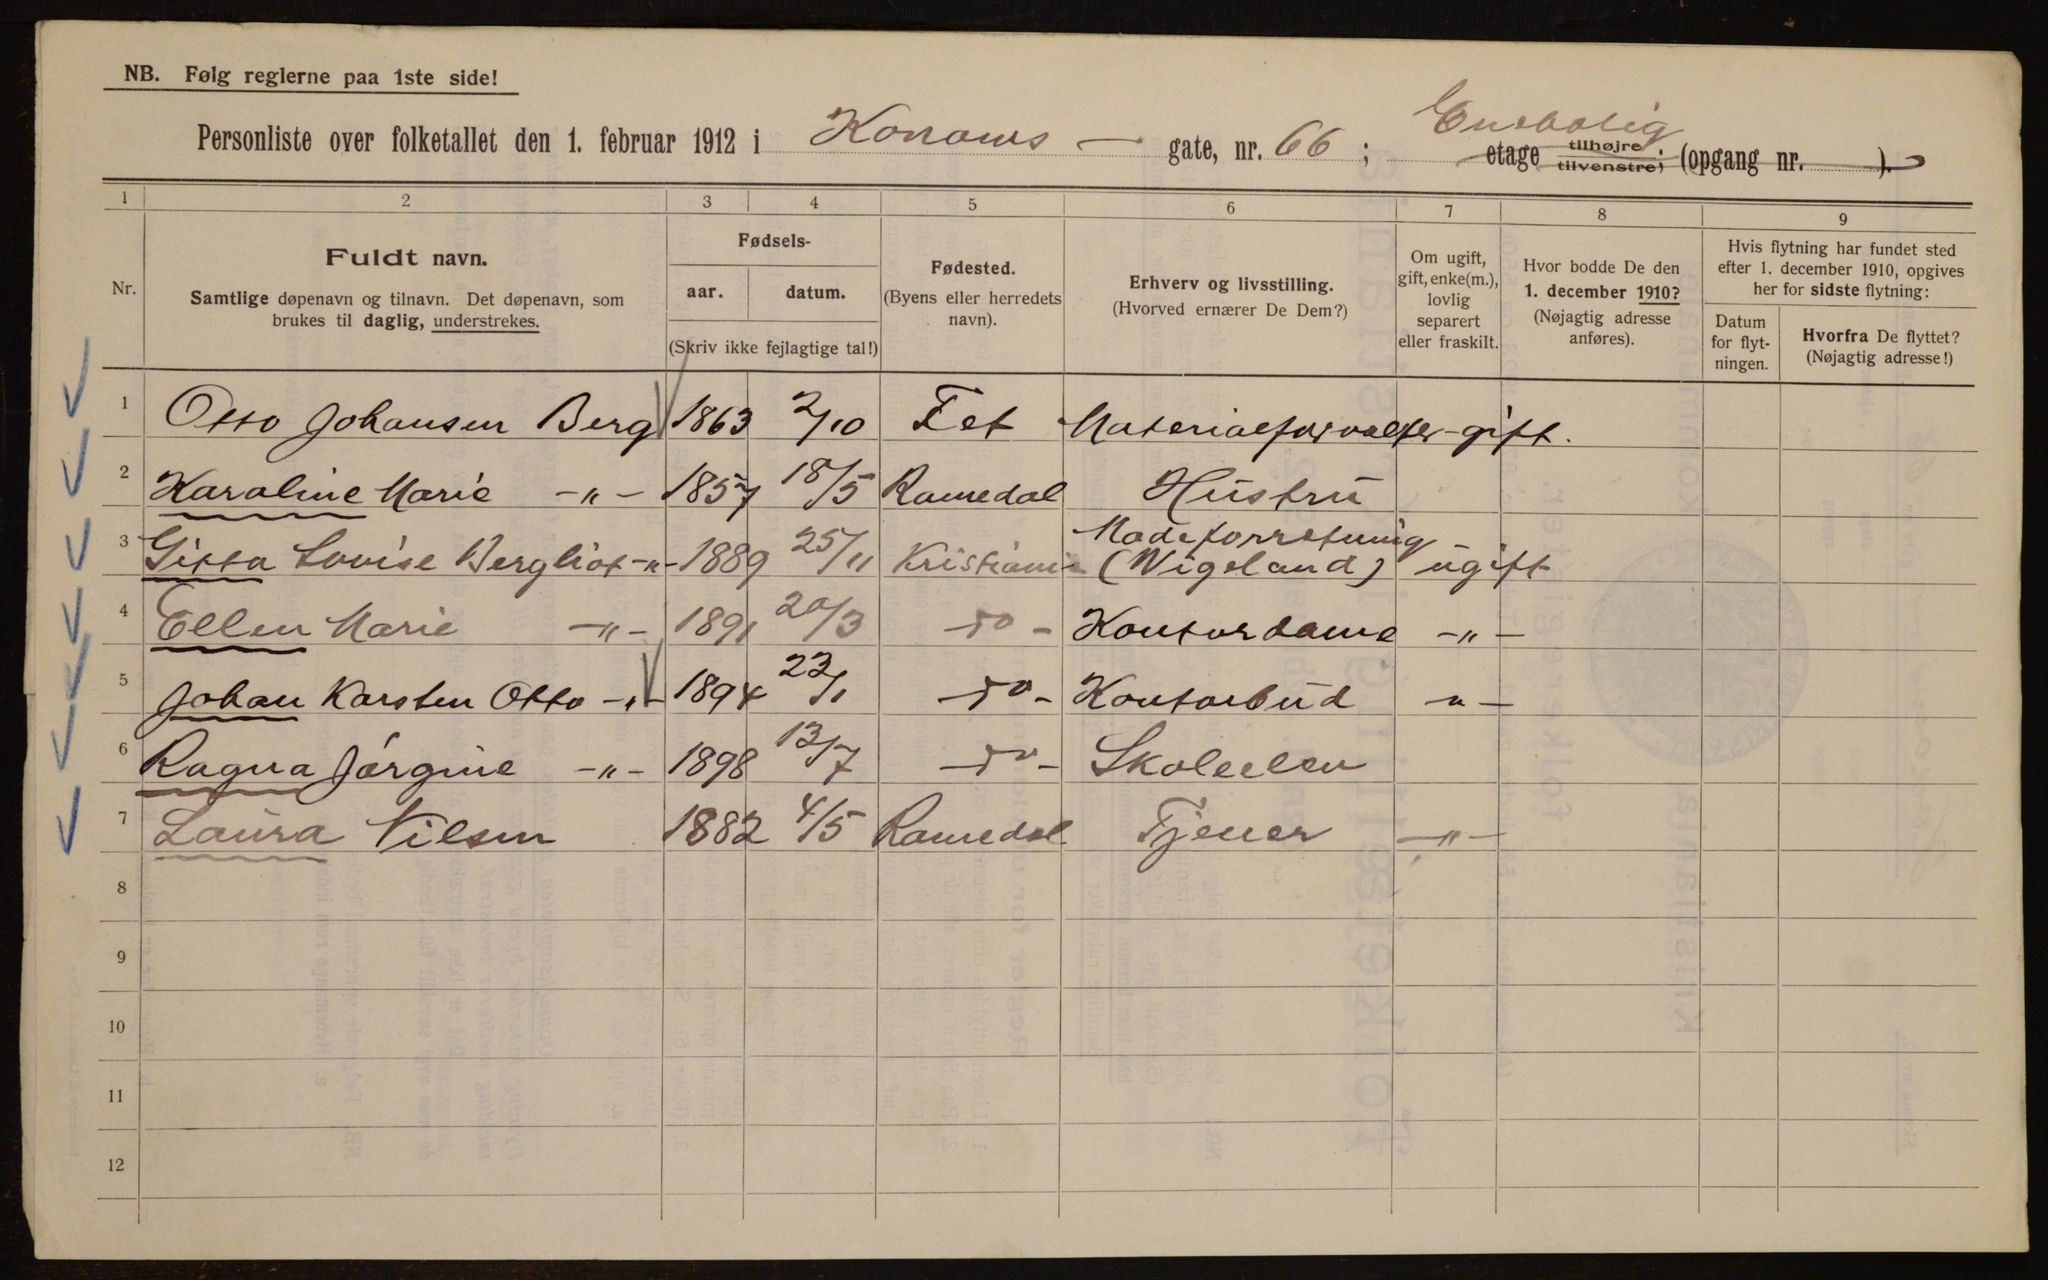 NB. Følg reglerne paa 1ste side!
Personliste over folketallet den 1. februar 1912 i Konows — gate, nr. 66; Enebolig etage tilhøjre, tilvenstre, (opgang nr. ).
1 2 3 4 5 6 7 8 9
Nr.
Fuldt navn.
Samtlige døpenavn og tilnavn. Det døpenavn, som
brukes til daglig, understrekes.
Fødsels-
aar. datum.
(Skriv ikke fejlagtige tal!)
Fødested.
(Byens eller herredets
navn).
Erhverv og livsstilling.
(Hvorved ernærer De Dem?)
Om ugift,
gift, enke(m.),
lovlig
separert
eller fraskilt.
Hvor bodde De den
1. december 1910?
(Nøjagtig adresse
anføres).
Hvis flytning har fundet sted
efter 1. december 1910, opgives
her for sidste flytning:
Datum
for flyt-
ningen.
Hvorfra De flyttet?
(Nøjagtig adresse!)
1 Otto Johansen Berg 1863 2/10 Fet Materialforvalter gift.
2 Karoline Marie -"- 1857 18/5 Romedal Hustru
3 Gitta Lovise Bergliot -"- 1889 25/11 Kristiania Modeforretning (Vigeland) ugift
4 Ellen Marie -"- 1891 20/3 -do- Kontordame -"-
5 Johan Karsten Otto -"- 1894 23/1 -do- Kontorbud -"-
6 Ragna Jørgine -"- 1898 13/7 -do- Skoleelev
7 Laura Nilsen 1882 4/5 Romedal Tjener -"-
8
9
10
11
12